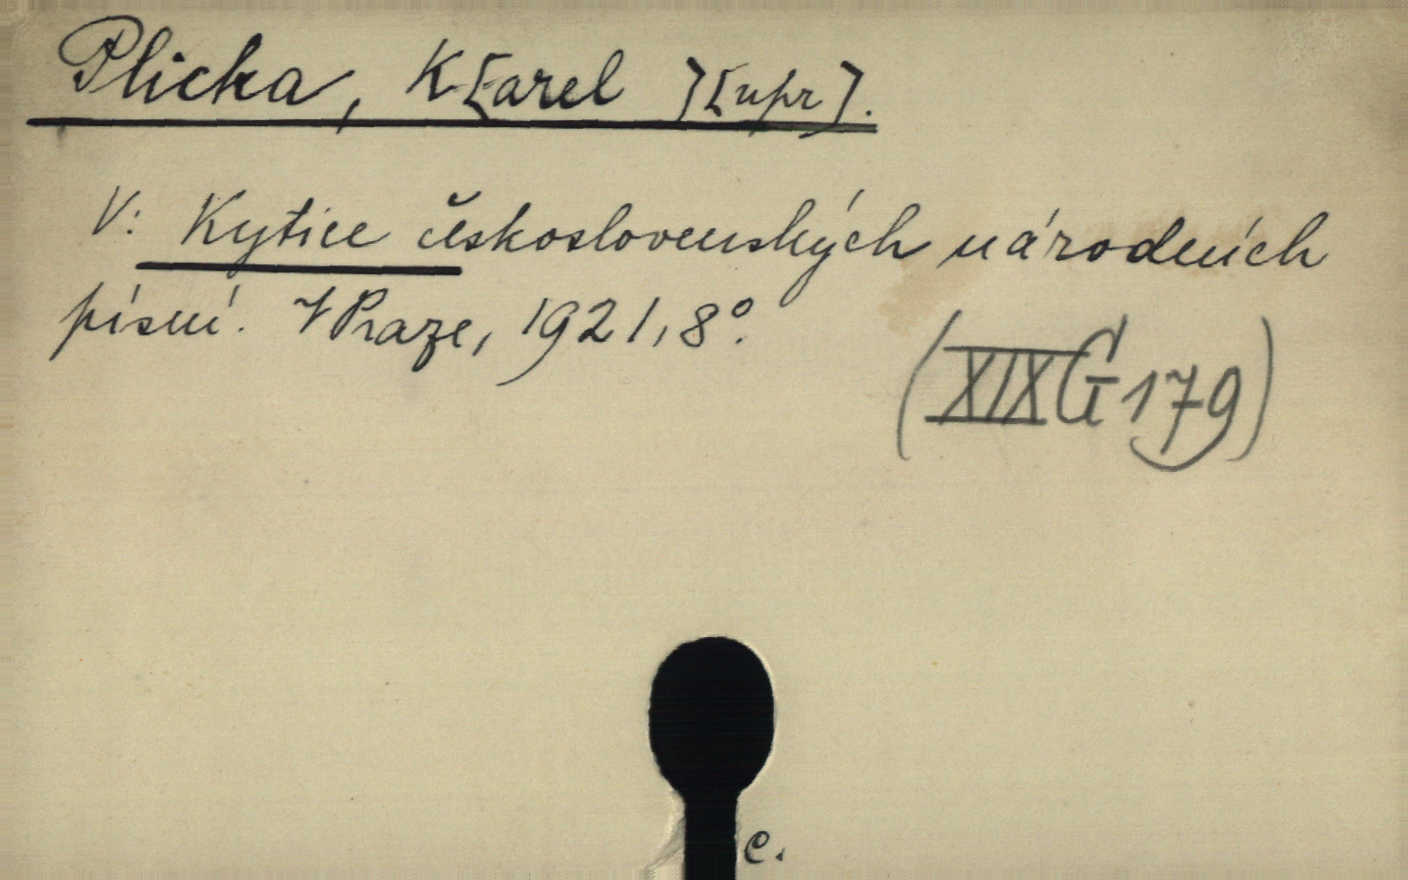 Plicka, K[arel] [upr].
V: Kytice československých národních
písní. V Praze, 1921, 8°.
(XIX G 179)
c.